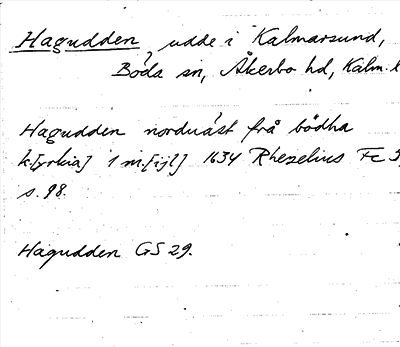 Hagudden, udde i Kalmarsund,
Böda sn, Åkerbo hd, Kalm. l
Hagudden norduást frå bödha
k.[yrkia] 1 m.[ijl] 1634 Rhezelius Fc 5,
s. 98.
Hagudden GS 29.